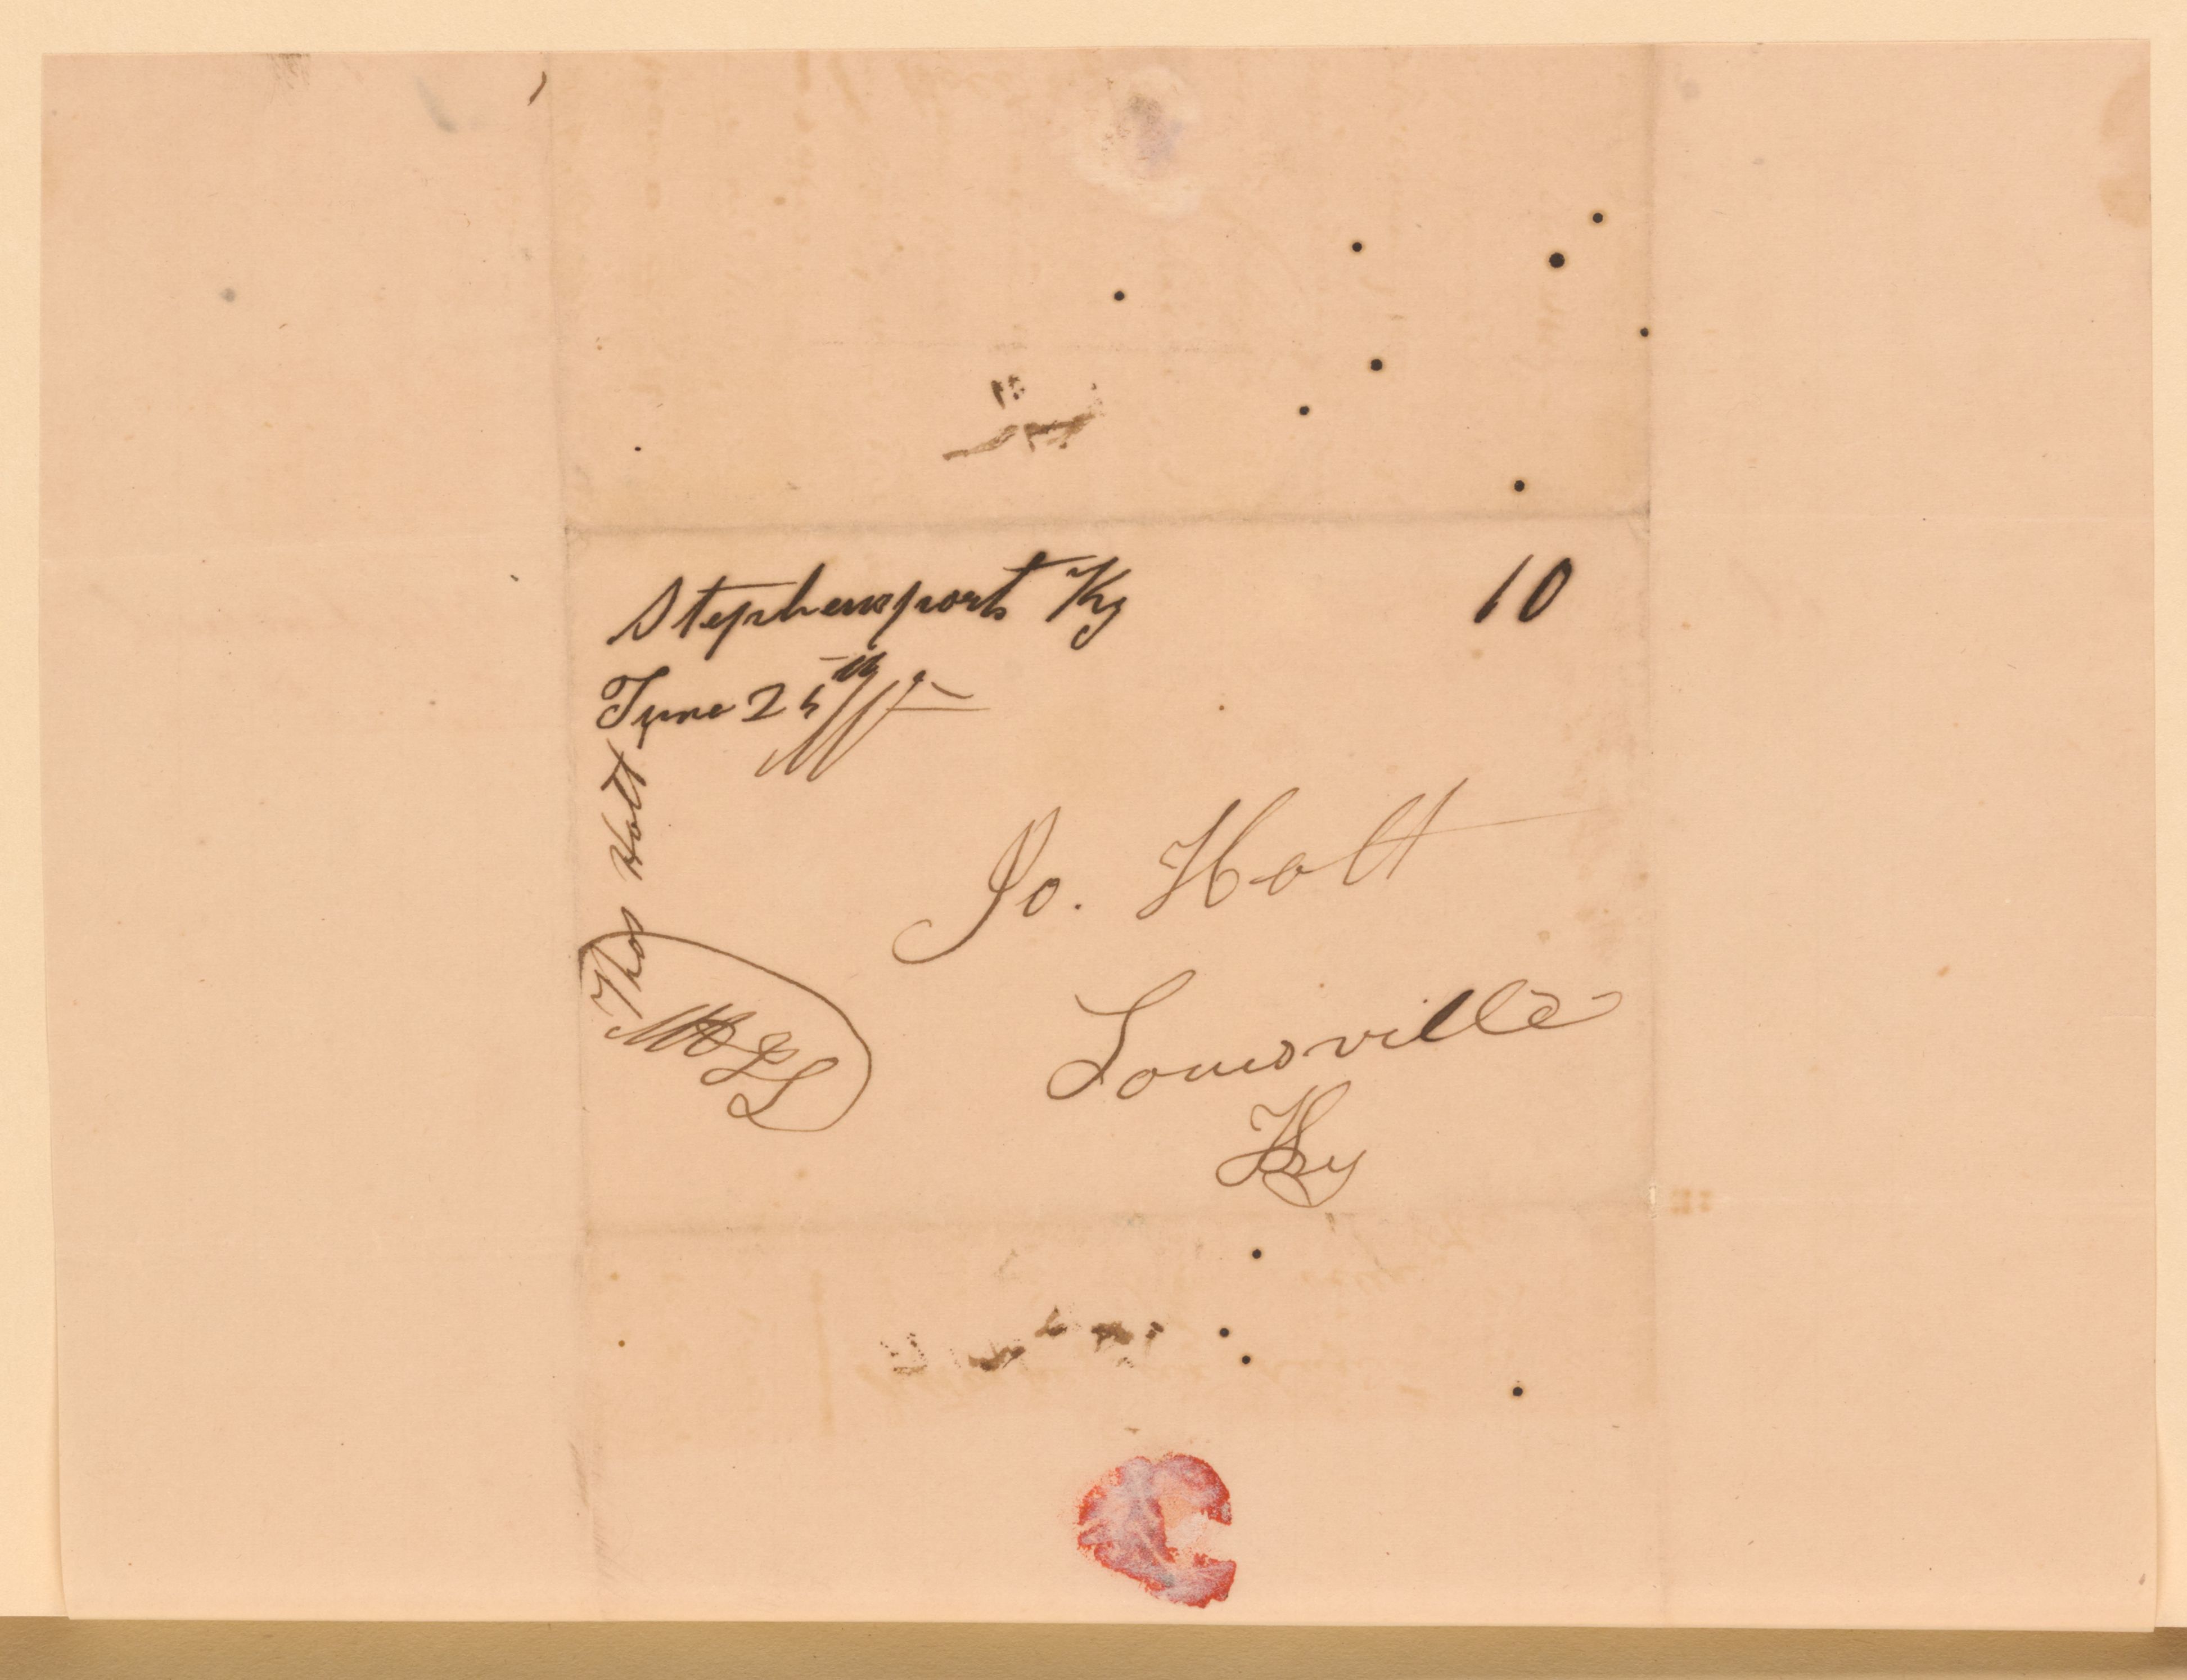 Stephensport Ky 10
June 25th
Jo. Holt
Louisville
Ky
Thos Holt